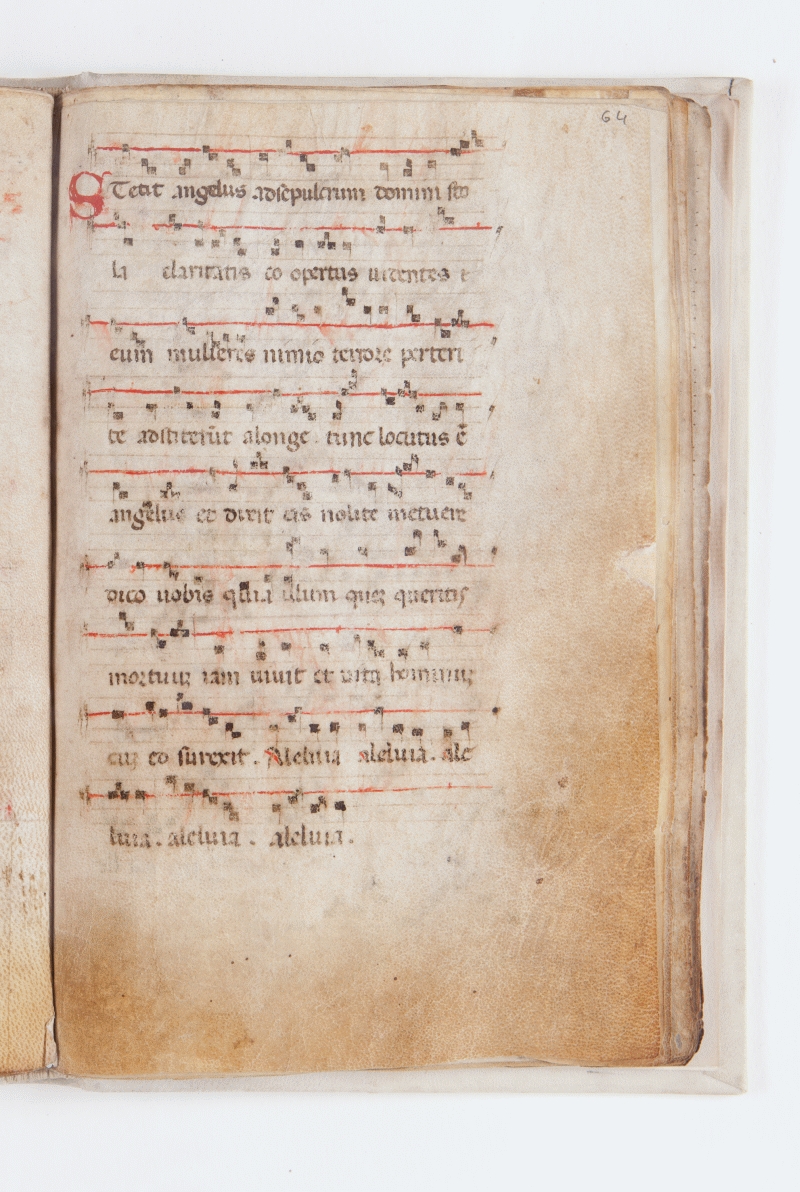 64
STetit angelus adsepulcrum domini sto
la claritatis co opertus uidentes
eum mulieres nimio terrore perteri
te adstiterūt alonge . tunc locutus ē
angelus et dixit eis nolite metuere
dico uobis quia illum quem queritis
mortuum iam uiuit et uita hominum
cum eo surexit . Aleluia aleluia . ale
luia . aleluia . aleluia .